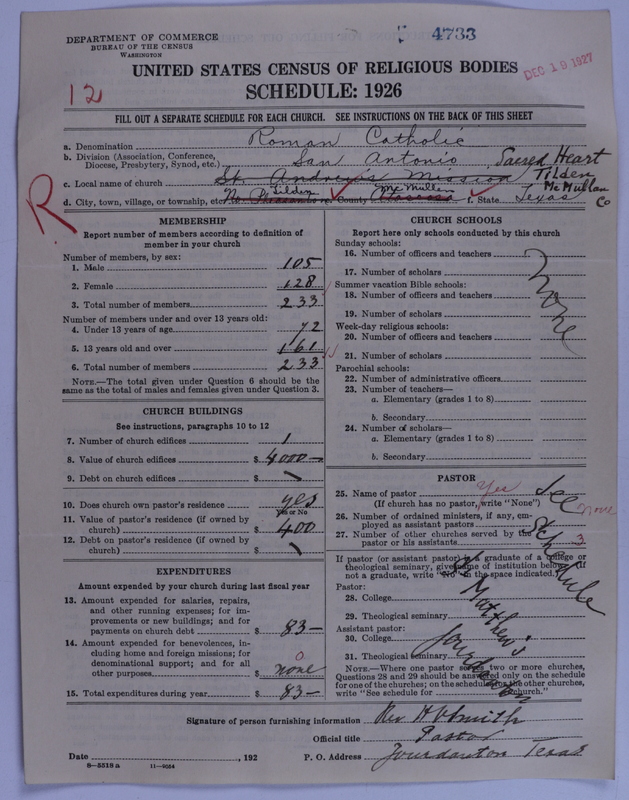 4733
DEPARTMENT OF COMMERCE
BUREAU OF THE CENSUS
WASHINGTON
UNITED STATES CENSUS OF RELIGIOUS BODIES
DEC 19 1927
12
SCHEDULE: 1926
FILL OUT A SEPARATE SCHEDULE FOR EACH CHURCH. SEE INSTRUCTIONS ON THE BACK OF THIS SHEET
a. Denomination Roman Catholic
b. Division (Association, Conference, Diocese, Presbytery, Synod, etc.) San Antonio
Sacred Heart
c. Local name of church St. Andrew's Mission
Tilden
McMullan Co
d. City, town, village, or township, etc. Tilden County McMullen f. State Texas
R
MEMBERSHIP
Report number of members according to definition of
member in your church
Number of members, by sex:
1. Male 105
2. Female 128
3. Total number of members 233
Number of members under and over 13 years old:
4. Under 13 years of age 72
5. 13 years old and over 161
6. Total number of members 233
NOTE.—The total given under Question 6 should be
same as the total of males and females given under Question 3.
CHURCH BUILDINGS
See instructions, paragraphs 10 to 12
7. Number of church edifices 1
8. Value of church edifices $ 4000—
9. Debt on church edifices $ —
10. Does church own pastor's residence yes
Yes or No
11. Value of pastor's residence (if owned by
church) $ 400
12. Debt on pastor's residence (if owned by
church) $ —
EXPENDITURES
Amount expended by your church during last fiscal year
13. Amount expended for salaries, repairs,
and other running expenses; for im-
provements or new buildings; and for
payments on church debt $ 83—
14. Amount expended for benevolences, in-
cluding home and foreign missions; for
denominational support; and for all
other purposes $ none
0
15. Total expenditures during year $ 83—
CHURCH SCHOOLS
Report here only schools conducted by this church
Sunday schools:
16. Number of officers and teachers
17. Number of scholars
Summer vacation Bible schools:
18. Number of officers and teachers
19. Number of scholars
Week-day religious schools:
20. Number of officers and teachers
21. Number of scholars
Parochial schools:
22. Number of administrative officers
23. Number of teachers—
a. Elementary (grades 1 to 8)
b. Secondary
24. Number of scholars—
a. Elementary (grades 1 to 8)
b. Secondary
None
PASTOR
25. Name of pastor Yes
(If church has no pastor, write "None")
26. Number of ordained ministers, if any, em-
ployed as assistant pastors none
27. Number of other churches served by the
pastor or his assistants 3
If pastor (or assistant pastor) is a graduate of a college or
theological seminary, give name of institution below. (If
not a graduate, write "No" in the space indicated.)
Pastor:
28. College
29. Theological seminary
Assistant pastor:
30. College
31. Theological seminary
NOTE.—Where one pastor serves two or more churches,
Questions 28 and 29 should be answered only on the schedule
for one of the churches; on the schedules for the other churches,
write "See schedule for church."
See Schedule
St Matthew's
Jourdanton
Signature of person furnishing information Rev. H V Smith
Official title Pastor
Date , 192 P. O. Address Jourdanton Texas
8—5518 a 11—9084